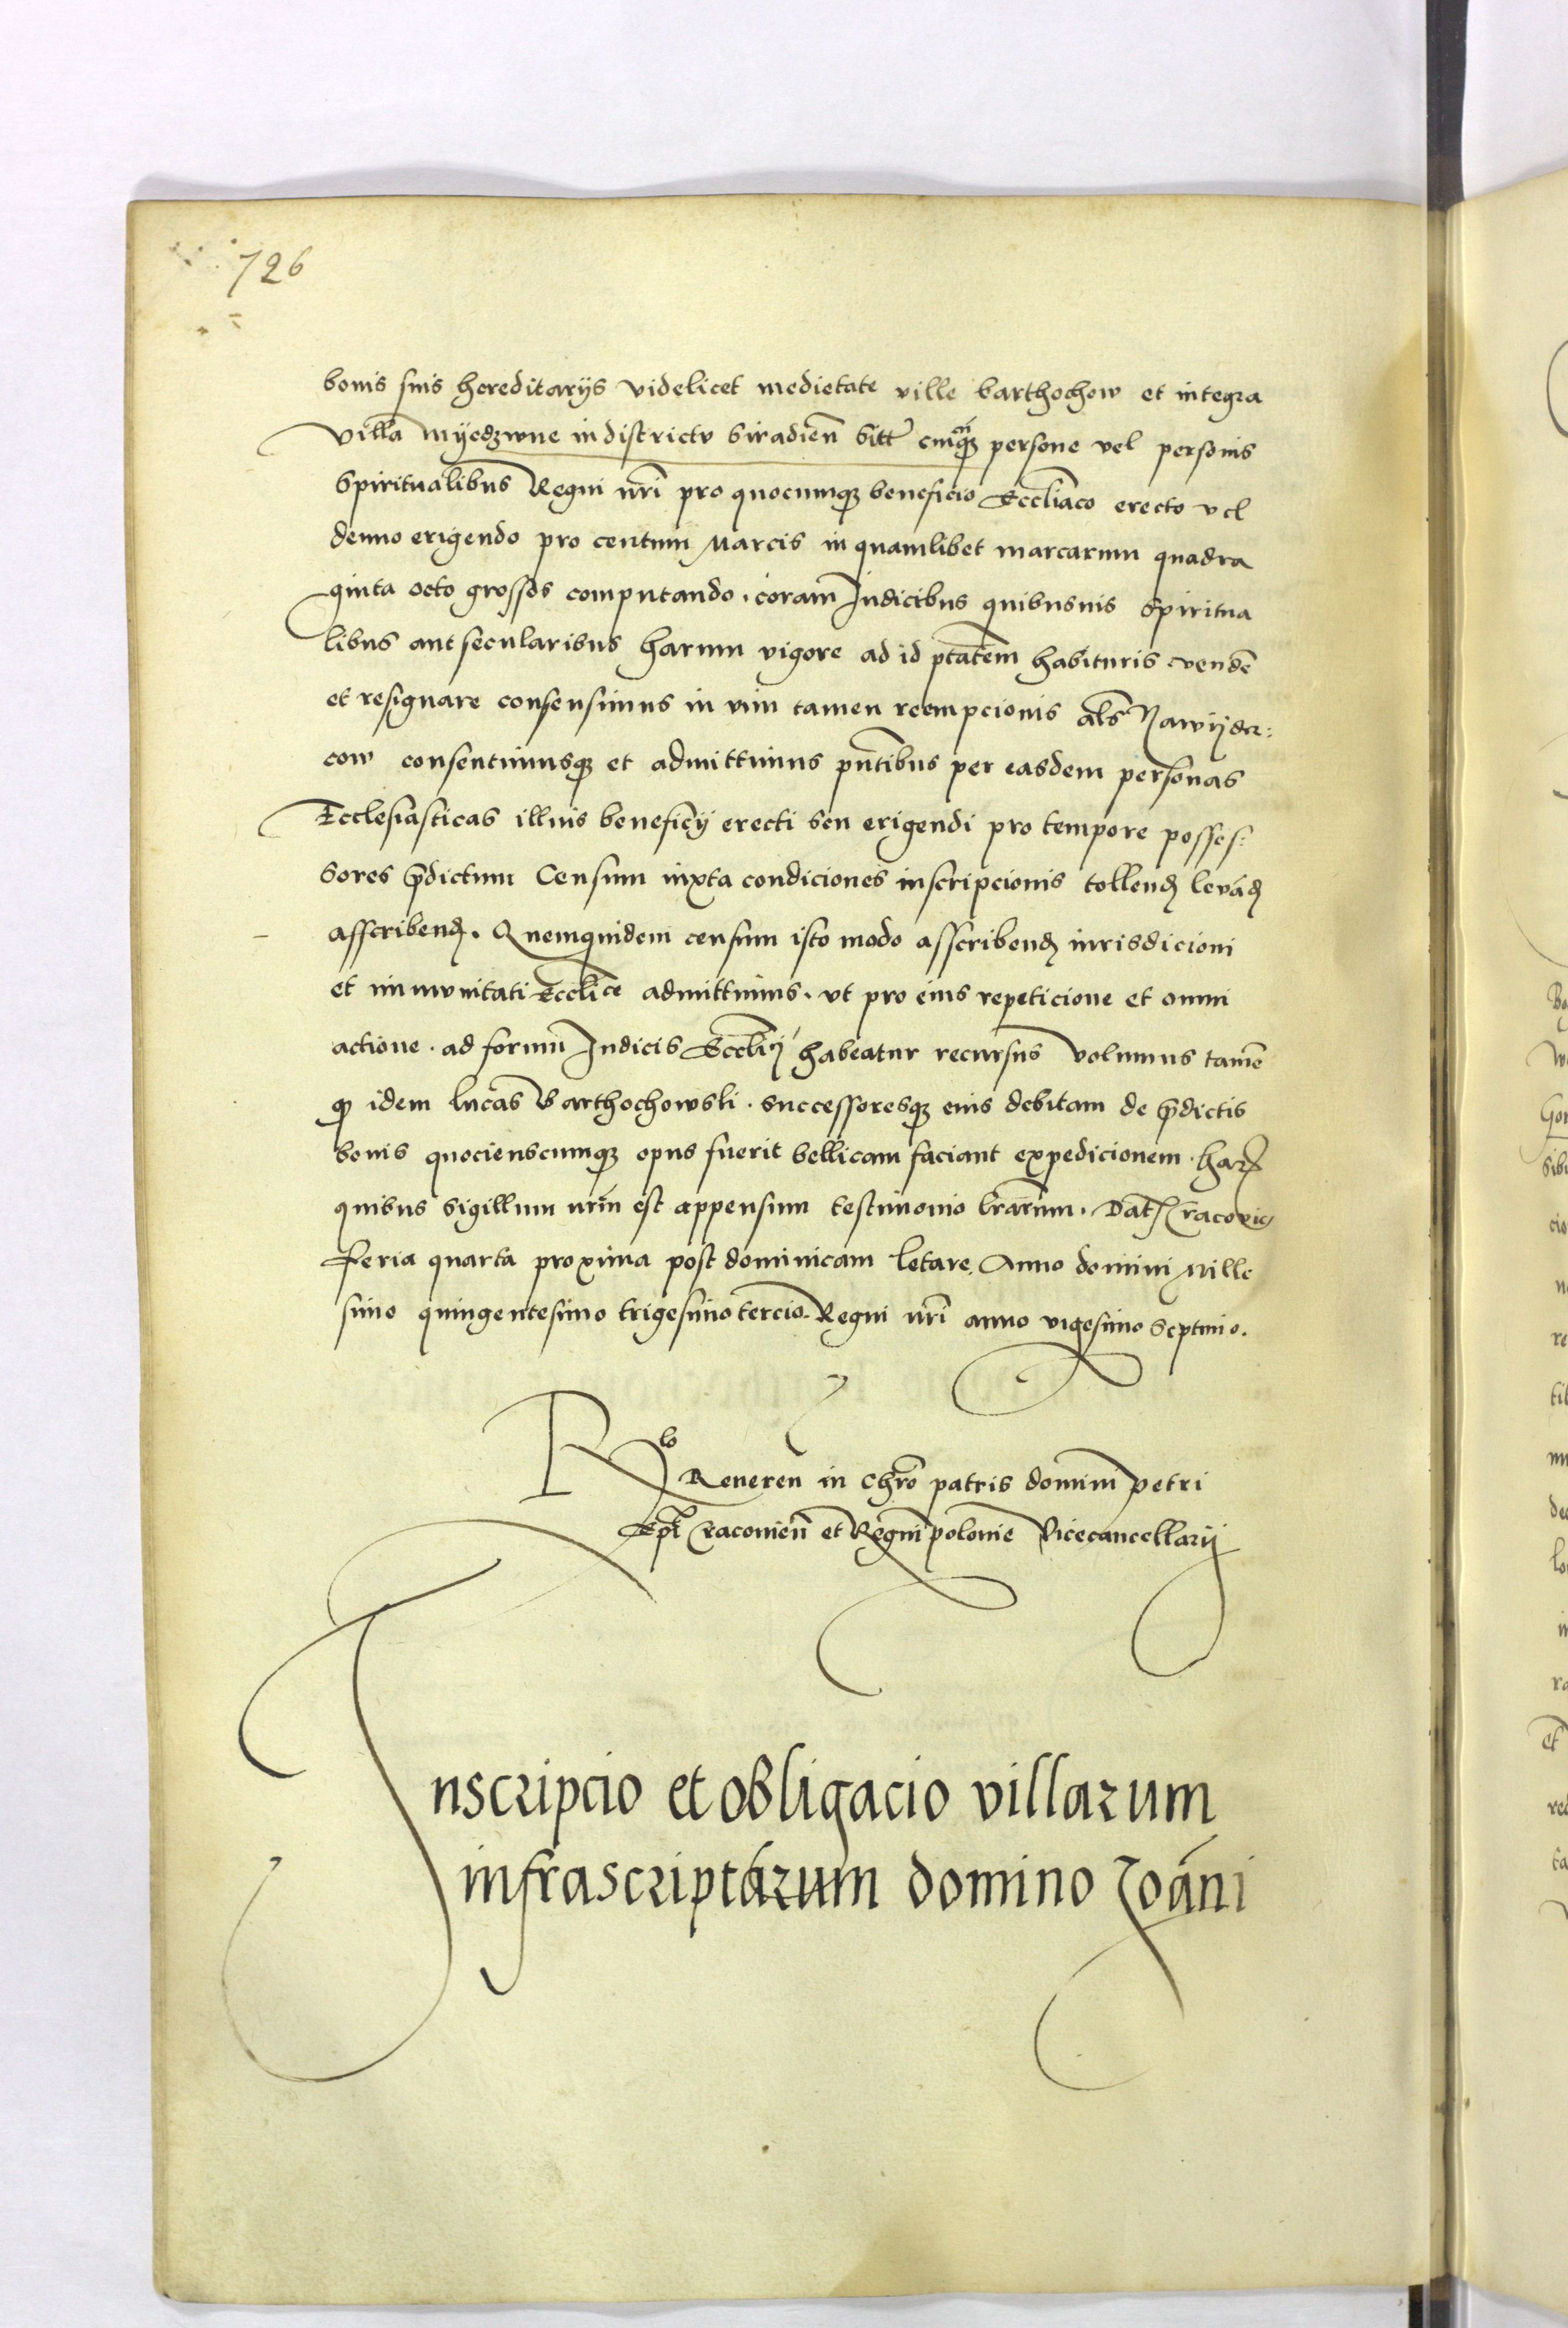 726
bonis suis hereditarijs videlicet medietate ville barthochow et integra
villa myedzwne in districtu Siradien̄ Sitt cuicu̅q̨ persone vel personis
Spiritualibus Regni nr̄i pro quocumq̨ beneficio Eccl̄iaco erecto vel
denuo erigendo pro centum Marcis in quamlibet marcarum quadra
ginta octo grossos computando. coram Iudicibus quibusuis Spiritua
libus aut secularibus harum vigore ad id ptātem habituris vendē
et resignare consensimus in vim tamen reempcionis al̄s Nawyder:
cow consentimusq̨ et admittimus pn̄tibus per easdem personas
Ecclesiasticas illius beneficij erecti seu erigendi pro tempore posses:
sores p̄dictum Censum iuxta condiciones inscripcionis tollend̨ levād̨
asscribend̨. Quemquidem censum isto modo asscribend̨ iurisdicioni
et immunitati Eccl̄ice admittimus. vt pro eius repeticione et omni
actione. ad forum Iudicis Eccl̄ij habeatur recursus volumus tamē
q̨ idem lucas Barthochowski. successoresq̨ eius debitam de p̄dictis
bonis quocienscumq̨ opus fuerit bellicam faciant expedicionem. har̨
quibus Sigillum nr̄m est appensum testimonio lr̄arum. Dat̨ Cracovie
feria quarta proxima post dominicam letare. Anno domini Mille
simo quingentesimo trigesimo tercio. Regni nr̄i anno vigesimo Septimo.
Rlo Reueren̄ in Chr̄o patris domini petri
Ep̄i Cracouien̄ et Regni polonie Vicecancellarij
Inscripcio et obligacio villarum
infrascriptarum domino Joāni